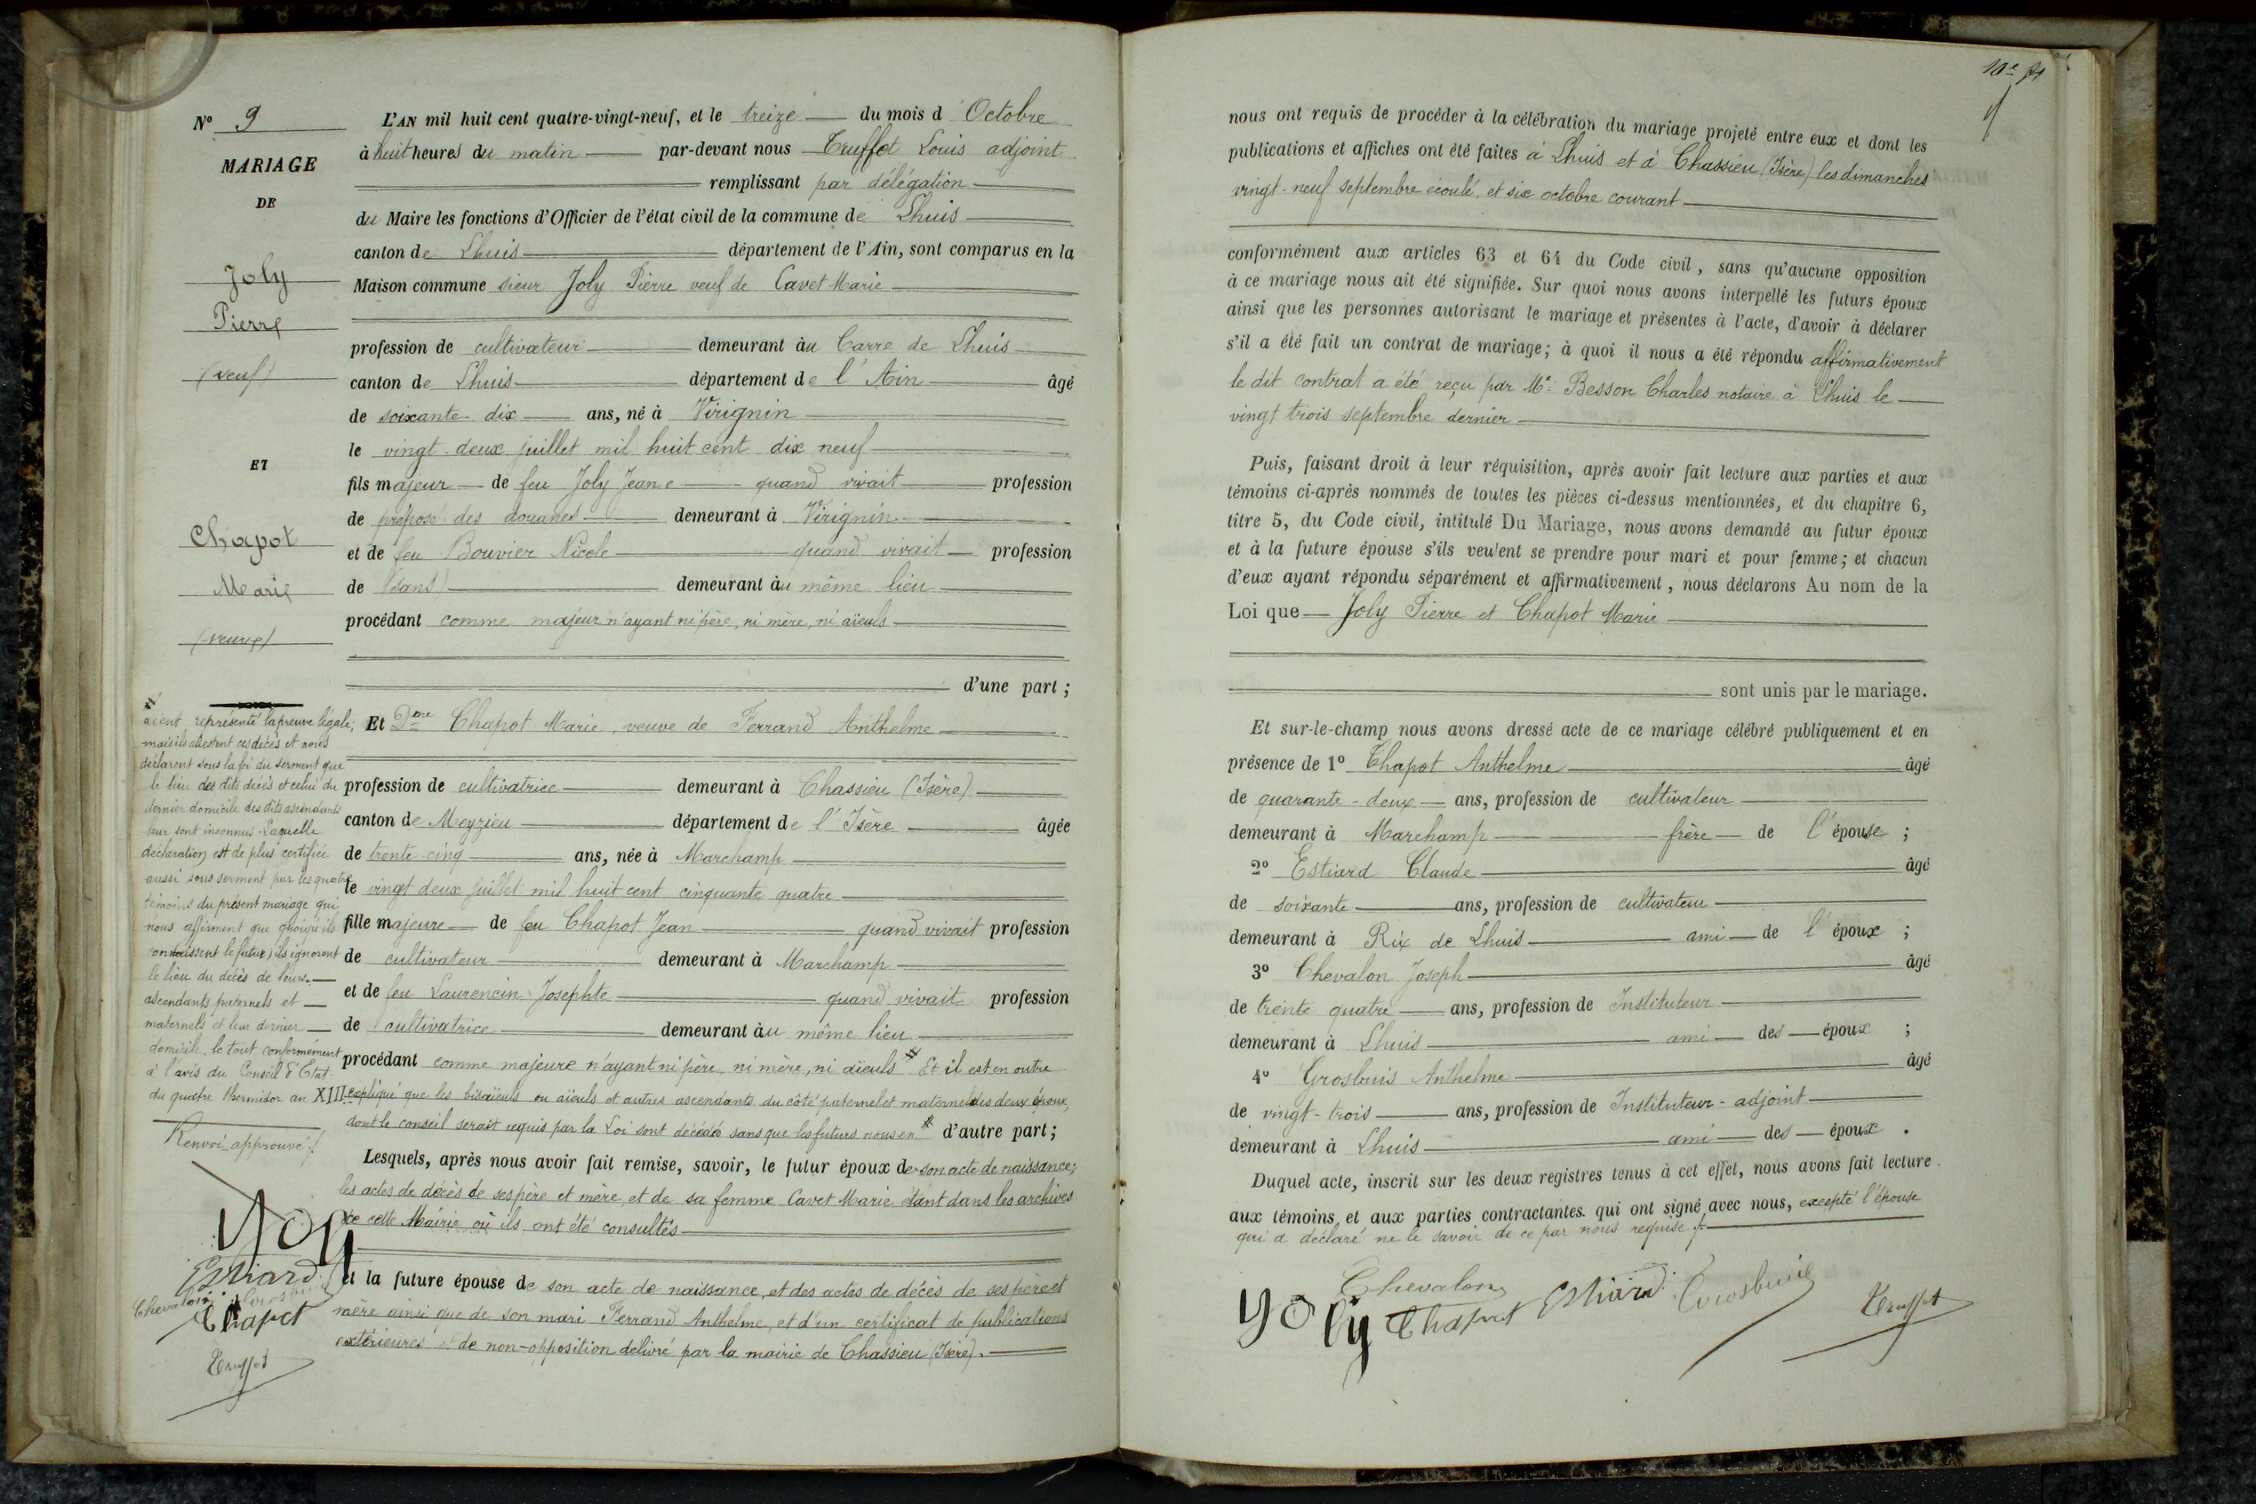 N° 9
MARIAGE
DE
Joly
Pierre
(veuf)
ET
Chapot
Marie
(veuve)
L'AN mil huit cent quatre-vingt-neuf, et le treize du mois d'Octobre
à huit heures du matin par-devant nous Truffot Louis adjoint
remplissant par délégation
du Maire les fonctions d'Officier de l'état civil de la commune de Lhuis
canton de Lhuis département de l'Ain, sont comparus en la
Maison commune sieur Joly Pierre veuf de Cavet Marie
profession de cultivateur demeurant au Carre de Lhuis
canton de Lhuis département de l'Ain âgé
de soixante-dix ans, né à Virignin
le vingt-deux juillet mil huit cent dix neuf
fils majeur de feu Joly Jean e quand vivait profession
de préposé des douanes demeurant à Virignin
et de feu Bouvier Nicole quand vivait profession
de (sans) demeurant au même lieu
procédant comme majeur n'ayant ni père, ni mère, ni aïeuls
d'une part ;
Et Dme Chapot Marie, veuve de Ferrand Anthelme
profession de cultivatrice demeurant à Chassieu (Isère)
canton de Meyzieu département de l'Isère âgée
de trente-cinq ans, née à Marchamp
le vingt deux juillet mil huit cent cinquante quatre
fille majeure de feu Chapot Jean quand vivait profession
de cultivateur demeurant à Marchamp
et de feu Laurencin Josephte quand vivait profession
de cultivatrice demeurant au même lieu
procédant comme majeure n'ayant ni père, ni mère, ni aïeuls # Et il est en outre
expliqué que les bisaïeuls ou aïeuls et autres ascendants du côté paternel et maternel des deux époux,
dont le conseil serait requis par la Loi sont décédés sans que les futurs nous en # d'autre part ;
Lesquels, après nous avoir fait remise, savoir, le futur époux de son acte de naissance;
les actes de décès de ses père et mère, et de sa femme Cavet Marie étant dans les archives
de cette Mairie où ils ont été consultés
et la future épouse de son acte de naissance, et des actes de décès de ses père et
mère ainsi que de son mari Ferrand Anthelme, et d'un certificat de publications
extérieures et de non-opposition délivré par la mairie de Chassieu (Isère).
#
aient représenté la preuve légale;
mais ils attestent ces décès et nous
déclarent sous la foi du serment que
le lieu des dits décès et celui du
dernier domicile des dits ascendants
leur sont inconnus. Laquelle
déclaration est de plus certifiée
aussi sous serment par les quatre
témoins du présent mariage qui
nous affirment que quoiqu'ils
connaissent le futur, ils ignorent
le lieu du décès de leurs
ascendants paternels et
maternels et leur dernier
domicile. le tout conformément
à l'avis du Conseil d'Etat
du quatre thermidor an XIII.
Renvoi approuvé
Joly
Estiard
Chevalon Grosbuis
Chapot
Truffot
10e
nous ont requis de procéder à la célébration du mariage projeté entre eux et dont les
publications et affiches ont été faites à Lhuis et à Chassieu (Isère) les dimanches
vingt-neuf septembre écoulé, et six octobre courant
conformément aux articles 63 et 64 du Code civil, sans qu'aucune opposition
à ce mariage nous ait été signifiée. Sur quoi nous avons interpellé les futurs époux
ainsi que les personnes autorisant le mariage et présentes à l'acte, d'avoir à déclarer
s'il a été fait un contrat de mariage; à quoi il nous a été répondu affirmativement
le dit contrat a été reçu par Me Besson Charles notaire à Lhuis le
vingt trois septembre dernier
Puis, faisant droit à leur réquisition, après avoir fait lecture aux parties et aux
témoins ci-après nommés de toutes les pièces ci-dessus mentionnées, et du chapitre 6,
titre 5, du Code civil, intitulé Du Mariage, nous avons demandé au futur époux
et à la future épouse s'ils veulent se prendre pour mari et pour femme; et chacun
d'eux ayant répondu séparément et affirmativement, nous déclarons Au nom de la
Loi que Joly Pierre et Chapot Marie
sont unis par le mariage.
Et sur-le-champ nous avons dressé acte de ce mariage célébré publiquement et en
présence de 1° Chapot Anthelme âgé
de quarante-deux ans, profession de cultivateur
demeurant à Marchamp frère de l'épouse ;
2° Estiard Claude âgé
de soixante ans, profession de cultivateur
demeurant à Rix de Lhuis ami de l'époux ;
3° Chevalon Joseph âgé
de trente quatre ans, profession de Instituteur
demeurant à Lhuis ami des époux ;
4° Grosbuis Anthelme âgé
de vingt-trois ans, profession de Instituteur-adjoint
demeurant à Lhuis ami des époux .
Duquel acte, inscrit sur les deux registres tenus à cet effet, nous avons fait lecture
aux témoins et aux parties contractantes. qui ont signé avec nous, excepté l'épouse
qui a déclaré ne le savoir de ce par nous requise
Chevalon
Joly Chapot Estiard Grosbuis Truffot